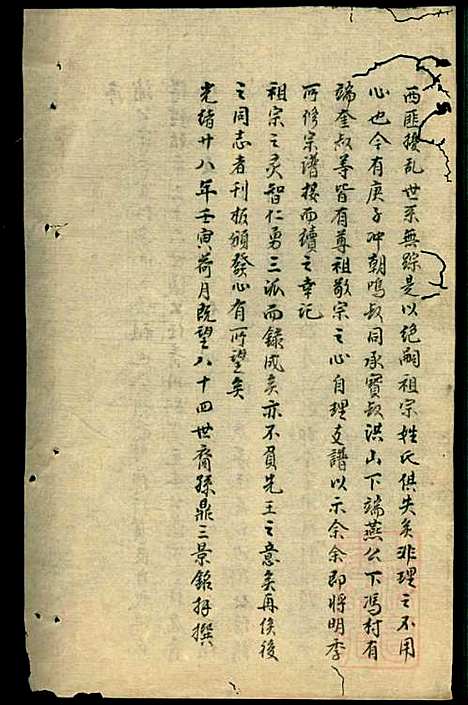 西匪擾乱世系無踪是以绝嗣祖宗姓氏俱失矣非理之不用
心也今有庚子冲朝鸣叔同承寳叔洪山下端燕公下馮村有
端奎叔等皆有尊祖敬宗之心自理支譜以示余余即將明季
所修宗譜接而續之幸記
祖宗之灵智仁勇三派而録成矣亦不負先王之意矣再俟後
之同志者刊板頒發心有所望矣
光绪廿八年壬寅荷月既望八十四世裔孫鼎三景銘拜撰